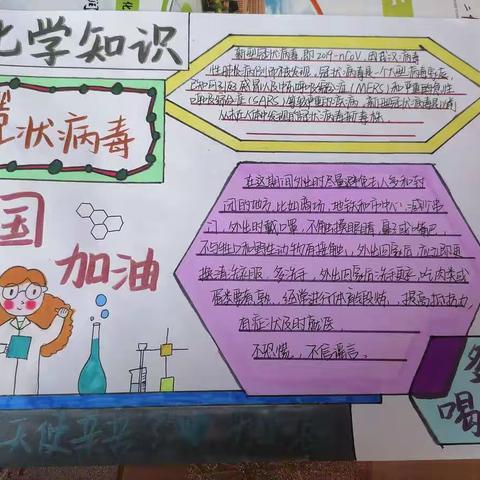 化学知识
新型冠状病毒,即2019-nCoV,因武汉病毒
性肺炎病例而被发现,冠状病毒是一个大型病毒家族,
已知可引起感冒以及中东呼吸综合征(MERS)和严重急性
呼吸综合征(SARS)等较严重疾病,新型冠状病毒是以前
从未在人体中发现的冠状病毒新毒株。
状病毒
国
加油
在这期间外出时尽量避免去人多和封
闭的地方,比如商场、地铁和市中心,减少出
门,外出时戴口罩,不触摸眼睛、鼻子或嘴巴,
不与牲口和野生动物有接触,外出回家后,应立即更
换清洗衣服,多洗手,外出回家后洗手,吃肉类或
蛋类要煮熟,经常进行体育锻炼,提高抵抗力,
有症状及时就医。
不恐慌,不信谣言。
喝
天使辛苦了